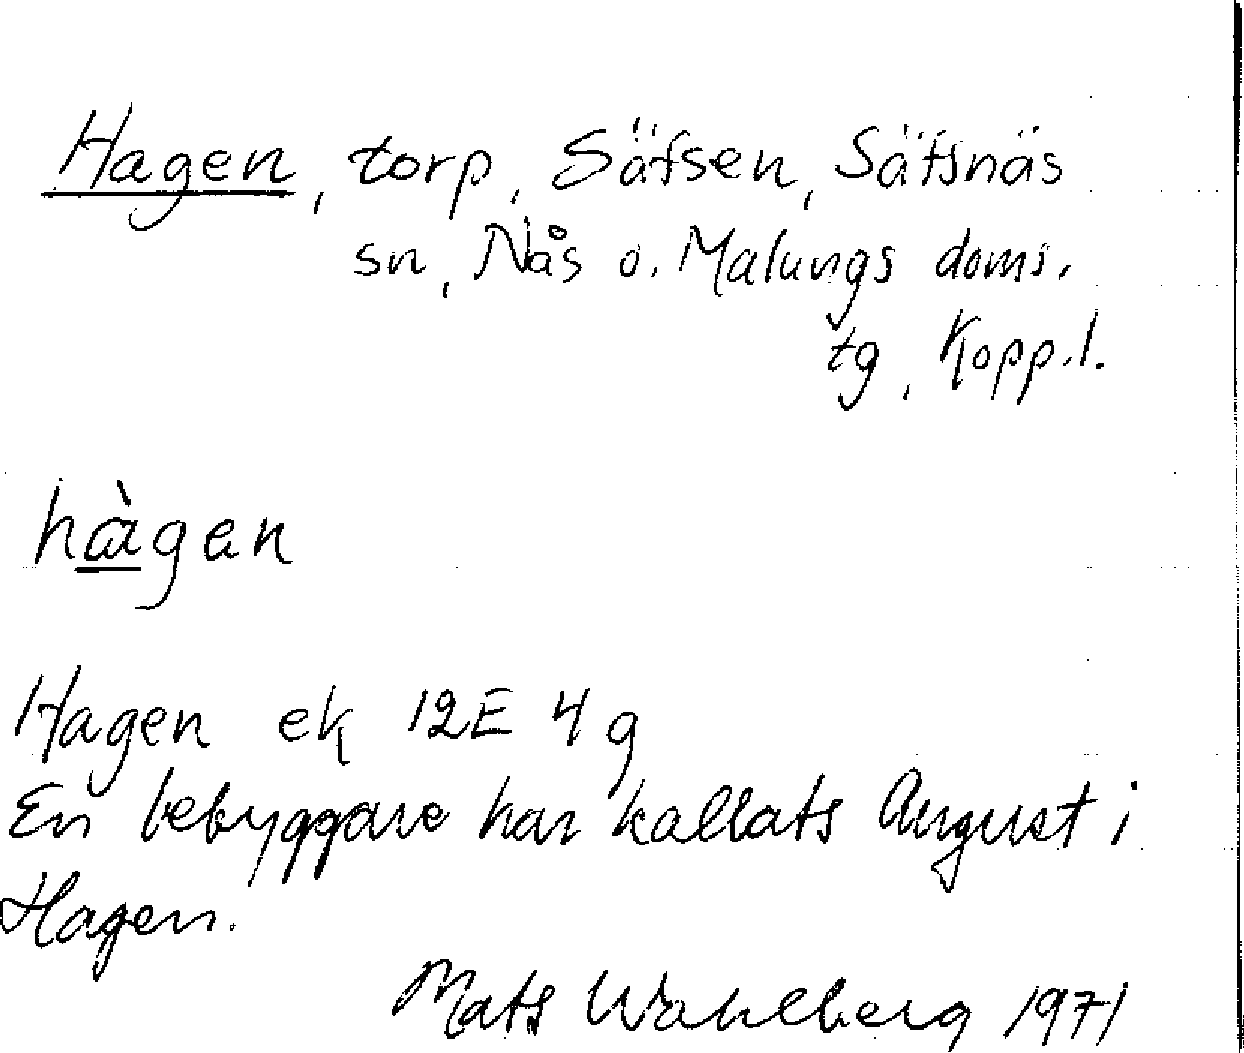 Hagen, torp, Säfsen, Säfsnäs
sn, Nås o. Malungs doms.
tg, Kopp.l.
hàgan
Hagen ek 12E 4g
En bebyggare har kallats August i
Hagen.
Mats Wahlberg 1971